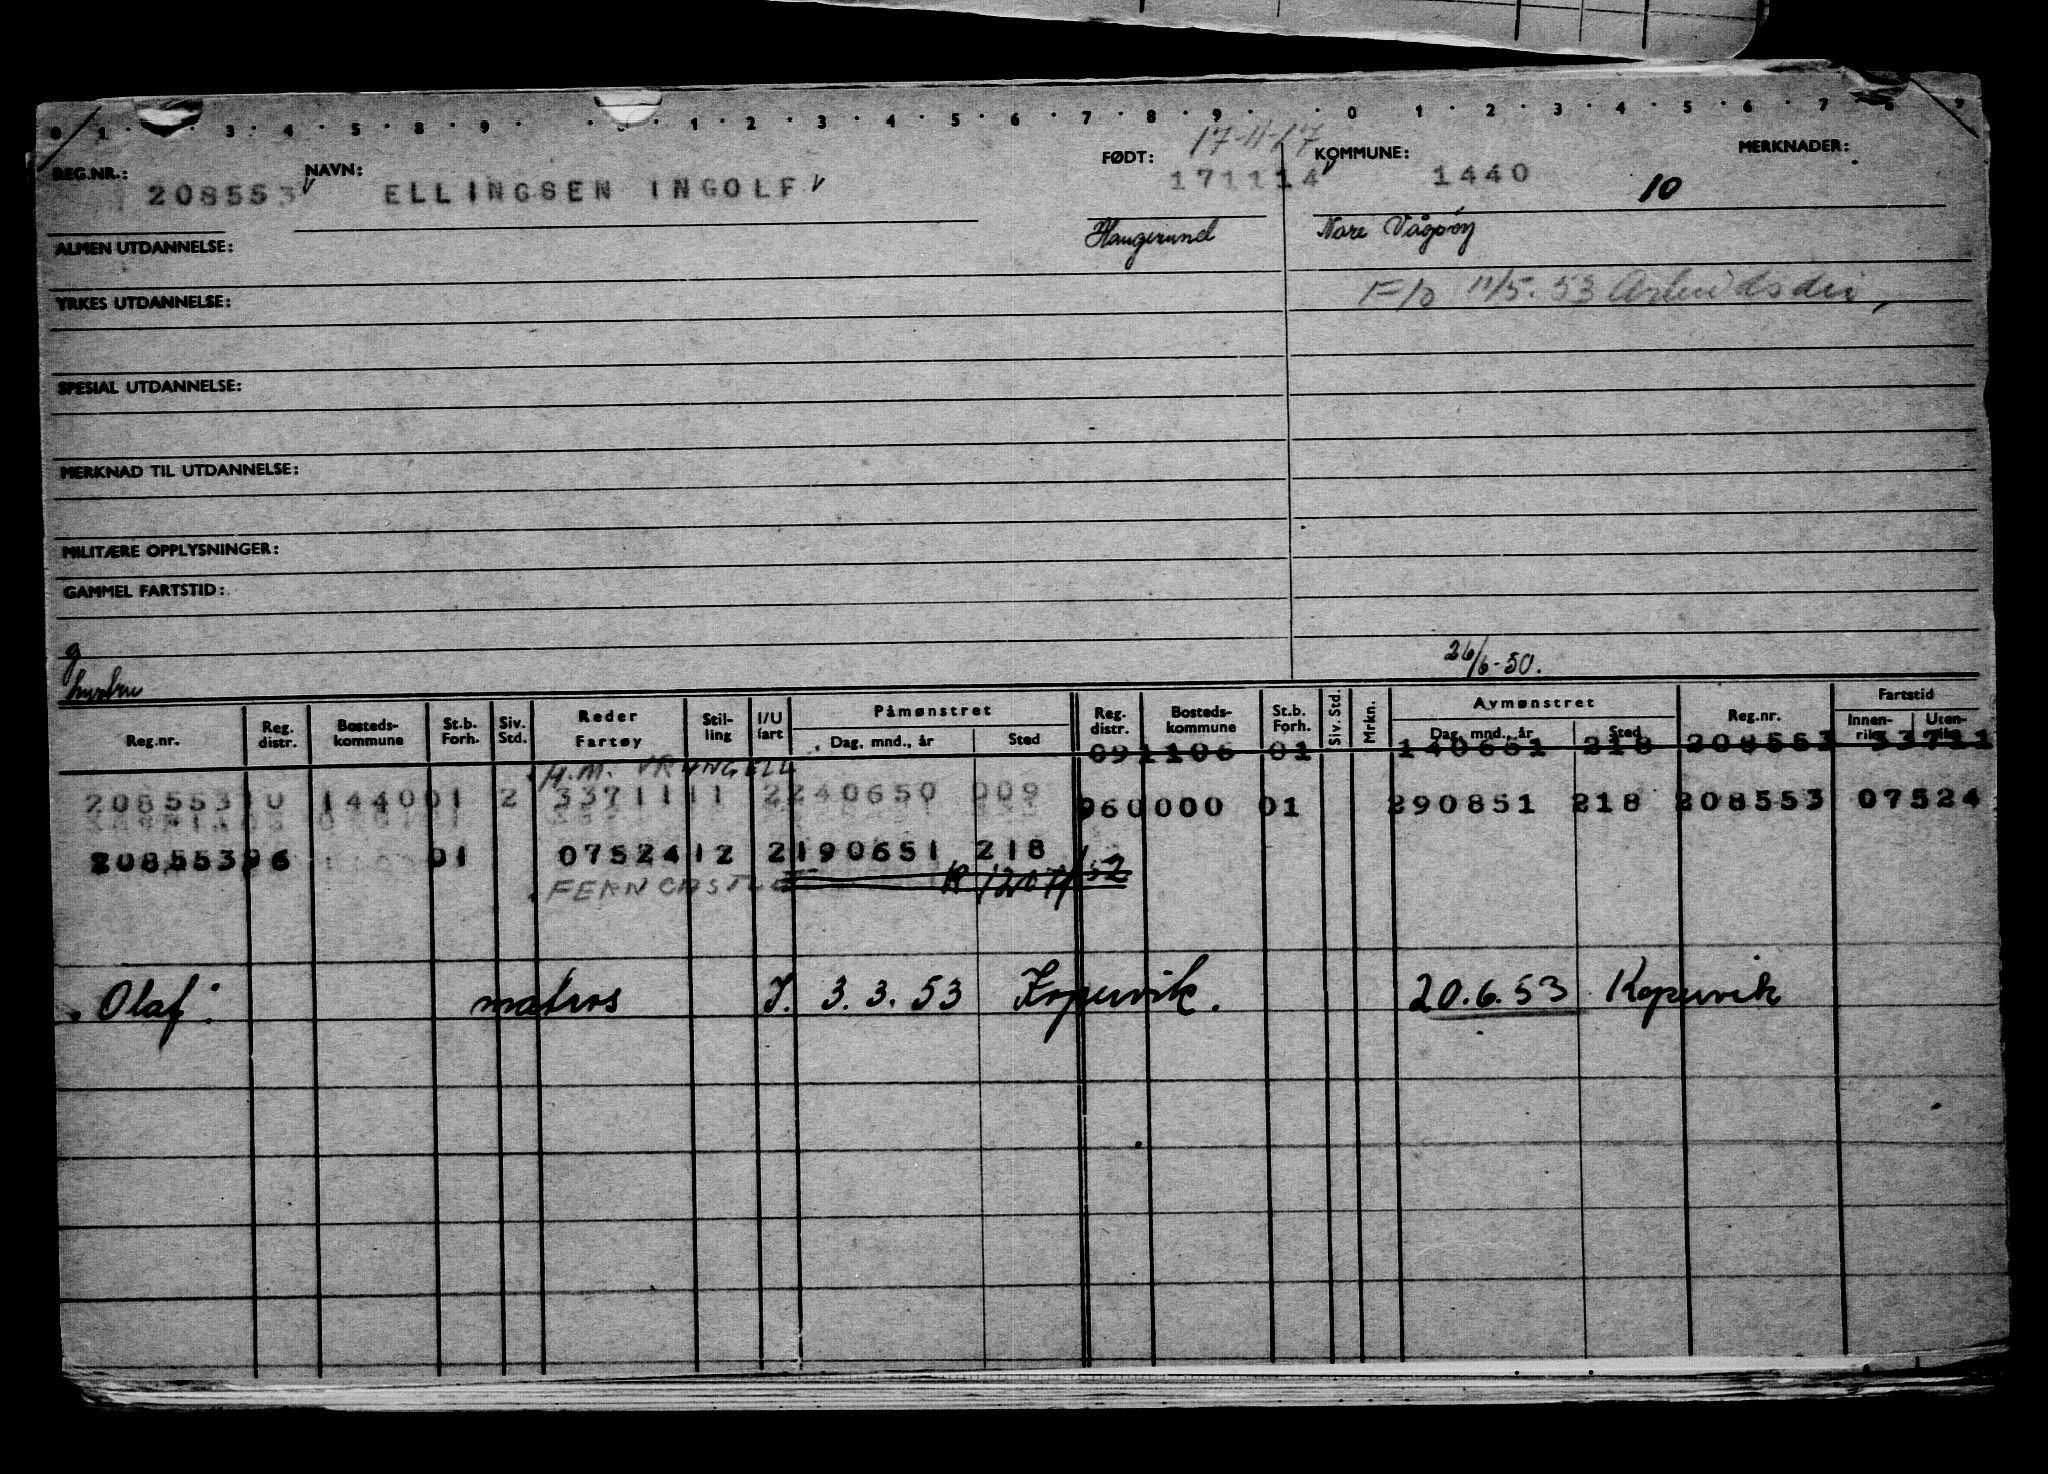 0 1 · 3 · 4 · 5 · 8 · 9 · · · 1 · 2 · 3 · 4 · 5 · 6 · 7 · 8 · 9 · · 0 · 1 · 2 · 3 · 4 · 5 · 6 · 7 · 8 · 9
17-11-17
REG.NR.: NAVN: FØDT: KOMMUNE: MERKNADER:
208553 ELLINGSEN INGOLF 171114 1440 10
ALMEN UTDANNELSE: Haugesund Nore Vågsøy
YRKES UTDANNELSE: F/o 11/5. 53 Arbeidsdir,
SPESIAL UTDANNELSE:
MERKNAD TIL UTDANNELSE:
MILITÆRE OPPLYSNINGER:
GAMMEL FARTSTID:
g
hustru 26/6-50.
Reg.nr. Reg. distr. Bosteds- kommune St.b. Forh. Siv. Std. Reder Fartøy Stil- ling I/U fart Påmønstret Dag, mnd., år Sted Reg. distr. Bosteds- kommune St.b. Forh. Siv. Std. Mrkn. Avmønstret Dag, mnd., år Sted Reg.nr. Fartstid Innen- riks Uten- riks
091106 01 140651 218 208553 33711
H.M. WRANGELL
208553 10 1440 01 2 33711 11 2 240650 009 960000 01 290851 218 208553 07524
208553 96 01 07524 12 2 190651 218
FERNCASTLE
Olaf: matros I. 3.3.53 Kopervik. 20.6.53 Kopervik